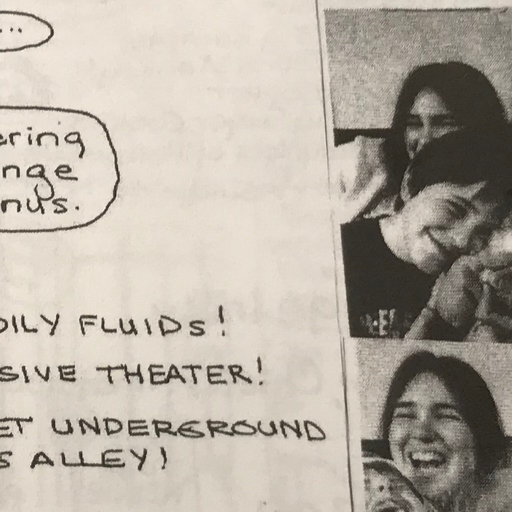 ...
ering
nge
nus.
DILY FLUIDS!
SIVE THEATER!
ET UNDERGROUND
S ALLEY!